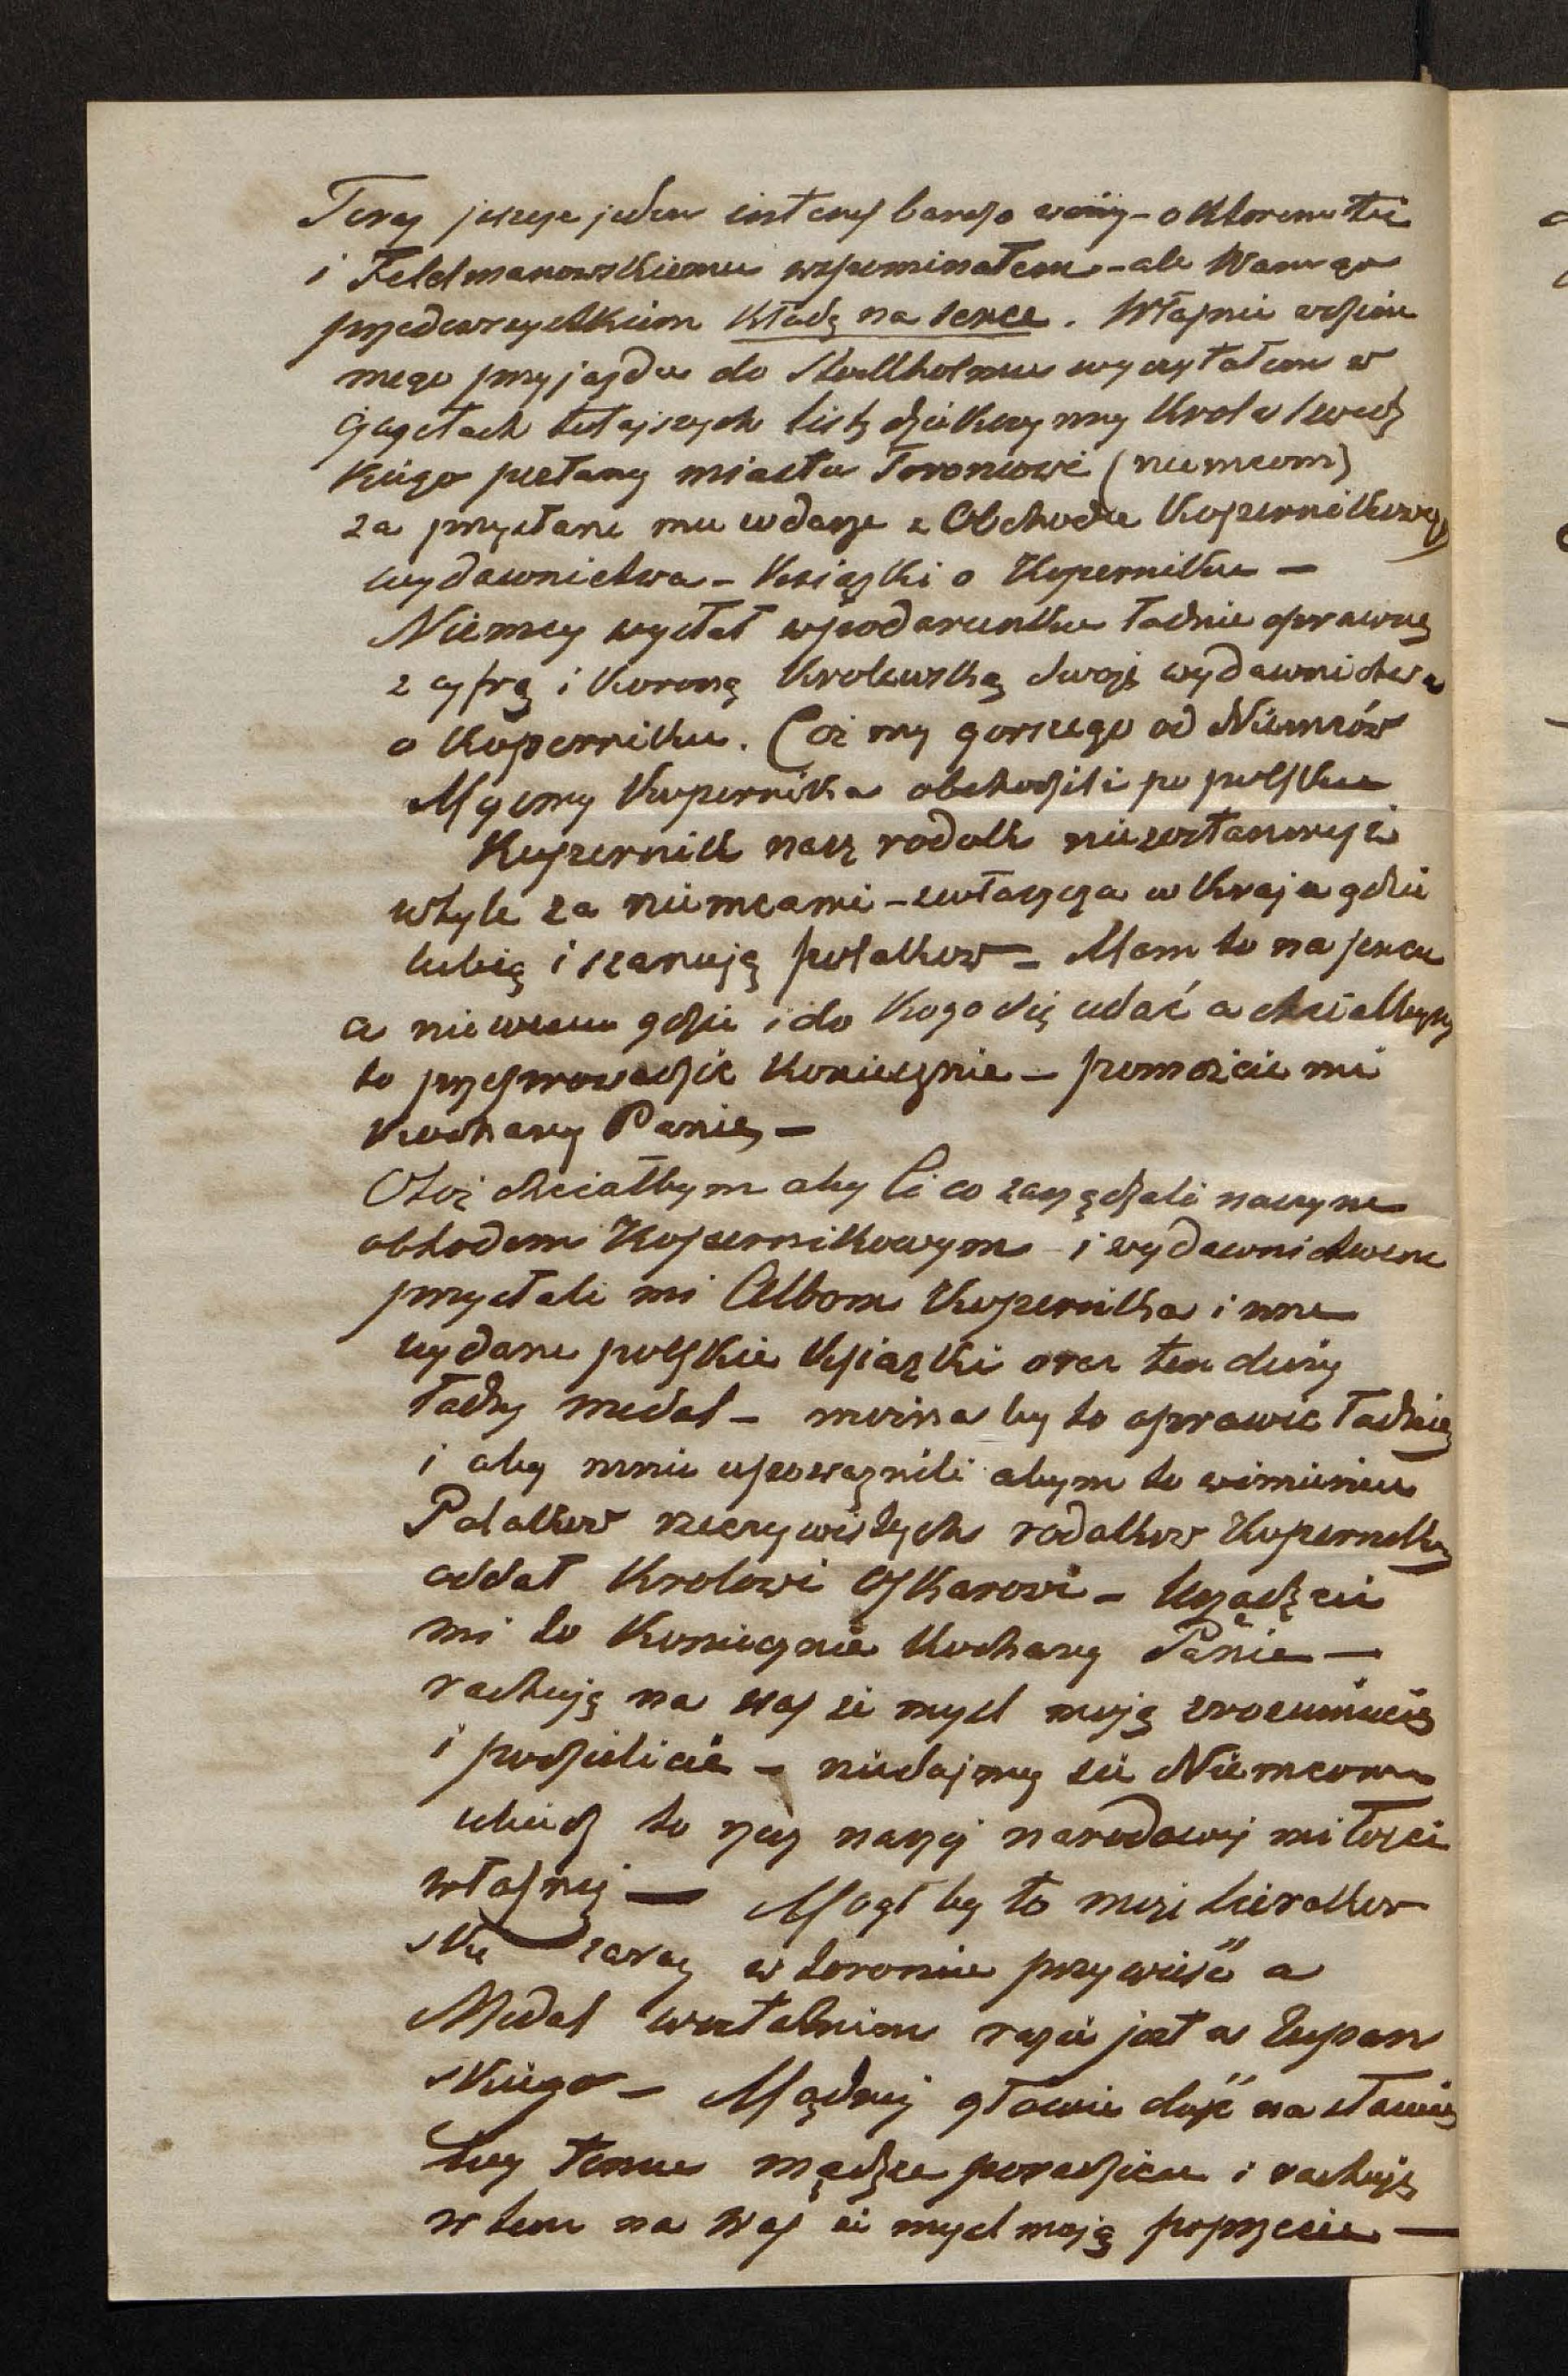 Teraz jeszcze jeden interes bardzo ważny - o którem też
i Feldmanowskiemu wspominałem - ale Wam go
przedewszystkiem kładę na serce. Właśnie w dzień
mego przyjazdu do Stockholmu wyczytałem w
gazetach tutejszych list dziękczynny Krola Szwedz
kiego pisłany miastu Toroniowi (niemcom)
za przysłane mu wdarze z Obchodu Kopernikowego
wydawnictwa - Książki o Koperniku -
Niemcy wysłał wpodarunku ładnie oprawne
z cyfrą i Koroną Krolewską swoje wydawnictwa
o Koperniku. Coż my gorszego od Niemców
Myśmy Kopernika obchodzili po polsku
Kopernik nasz rodak niezostanmyż
wtyle za niemcami - zwłaszcza w kraju gdzie
lubią i szanują polakow - Mam to na sercu
a niewiem gdzie i do kogo się udać a chciałbym
to przeprowadzić koniecznie - pomożcie mi
Kochany Panie -
Otoż chciałbym aby Ci co zarządzali naszym
obhodem Kopernikowym i wydawnictwem
przysłali mi Albom Kopernika i inne
wydane polskie Książki oraz ten duży
ładny medal - można by to oprawić ładnie
i aby mnie upoważnili abym to wimieniu
Polakow rzeczywistych rodakow Kopernika
oddał Krolowi Oskarowi - Urządźcie
mi to koniecznie Kochany Panie -
rachuję na was że mysl moję zrozumiecie
i podzielicie - niedajmy się Niemcom
ubiedz to rzecz naszej narodowej miłości
własnej - Mogł by to może Sierakow
ski zaraz w Toroniu przywieść a
Medal wostatnim razie jest u Żupan
skiego - Mądrej głowie dość na słowie
Wy temu mądrze poradzicie i rachuję
w tem na Was że mysl moją poprzecie -